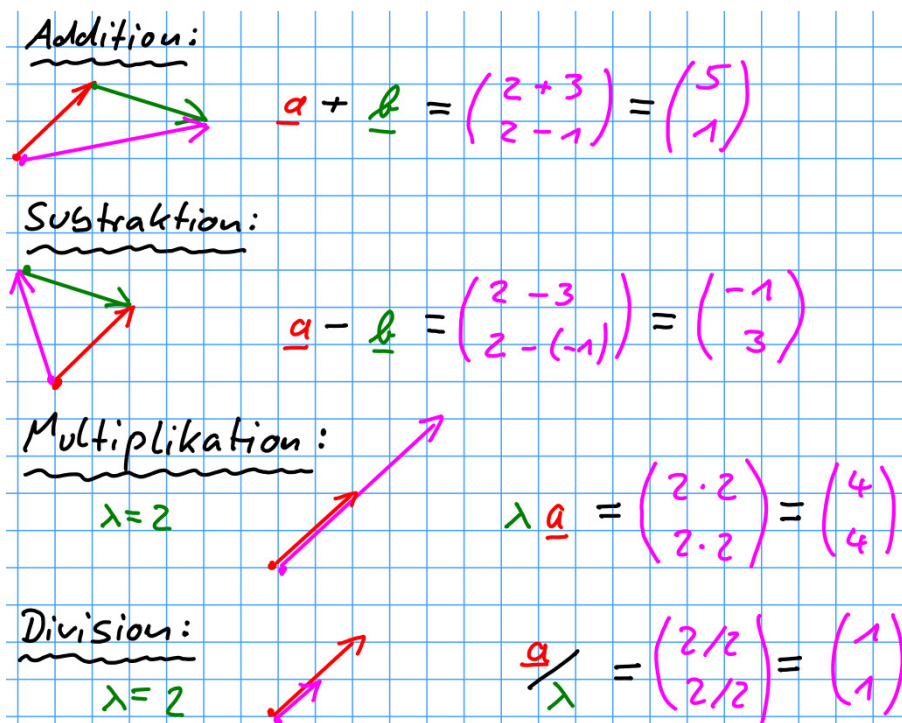 Addition:
a + b = (2 + 3 2 - 1) = (5 1)
Subtraktion:
a - b = (2 - 3 2 - (-1)) = (-1 3)
Multiplikation:
λ = 2
λ a = (2 · 2 2 · 2) = (4 4)
Division:
λ = 2
a/λ = (2/2 2/2) = (1 1)